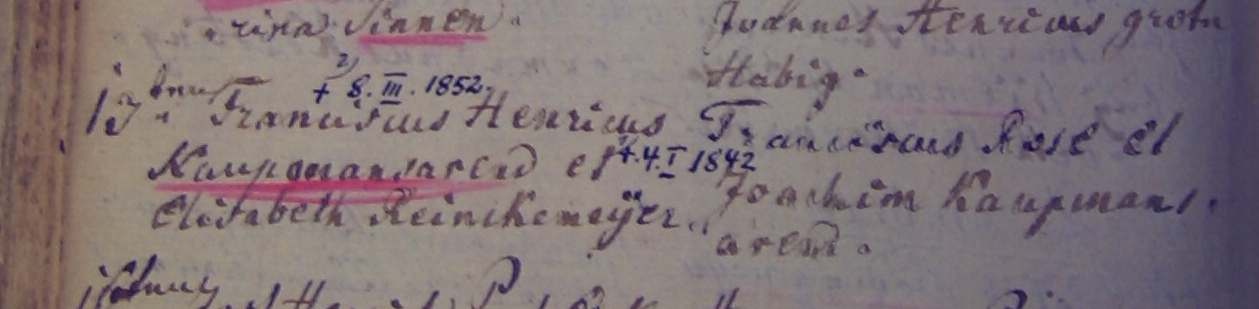 rina Sinnen. Joannes Henricus grote
Habig.
+ 8. III. 1852.
13 Franciscus Henricus Franciscus Rose et
Kaupmansarend et +.4. I 1842 Joachim Kaupmans.
Elisabeth Reinekemeÿer. arend.